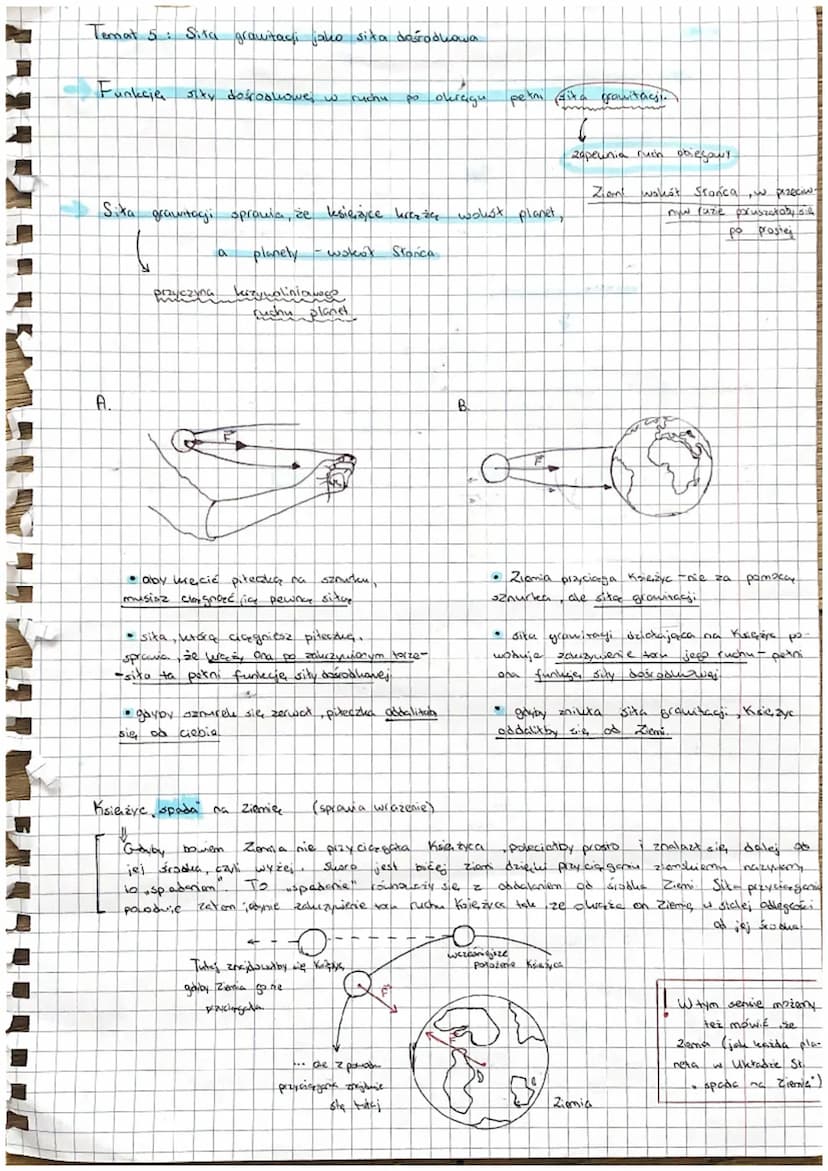 Temat 5: Siła grawitacji jako siła dośrodkowa
Funkcję siły dośrodkowej w ruchu po okręgu pełni siła grawitacji.
zapewnia ruch obiegowy
Ziemi wokół Słońca, w przeciw-
nym razie poruszałaby się
po prostej
Siła grawitacji sprawia, że księżyce krążą wokół planet,
a planety - wokół Słońca
przyczyna krzywoliniowego
ruchu planet
A.
B.
F
F
• aby kręcić piłeczką na sznurku,
musisz ciągnąć ją pewną siłą
• siła, którą ciągniesz piłeczkę,
sprawia, że krąży ona po zakrzywionym torze-
-siła ta pełni funkcję siły dośrodkowej
• gdyby sznurek się zerwał, piłeczka oddaliłab
się od ciebie
• Ziemia przyciąga Księżyc - nie za pomocą
sznurka, ale siłą grawitacji
• siła grawitacji działająca na Księżyc po-
woduje zakrzywienie toru jego ruchu - pełni
ona funkcję siły dośrodkowej
• gdyby znikła siła grawitacji, Księżyc
oddaliłby się od Ziemi.
Księżyc „spada" na Ziemię (sprawia wrażenie)
Gdyby bowiem Ziemia nie przyciągała Księżyca, poleciałby prosto i znalazł się dalej od
jej środka, czyli wyżej. Skoro jest bliżej Ziemi dzięki przyciąganiu ziemskiemu nazywamy
to „spadaniem". To „spadanie" równoważy się z oddalaniem od środka Ziemi. Siła przyciągania
powoduje zatem jedynie zakrzywienie toru ruchu Księżyca tak, że okrąża on Ziemię w stałej odległości
od jej środka.
Tutaj znajdowałby się Księżyc,
gdyby Ziemia go nie
przyciągała.
wcześniejsze
położenie Księżyca
F
F
... ale z powodu
przyciągania znajdzie
się tutaj
Ziemia
! W tym sensie możemy
też mówić, że
Ziemia (jak każda pla-
neta w Układzie Sł.
„spada na Ziemię")